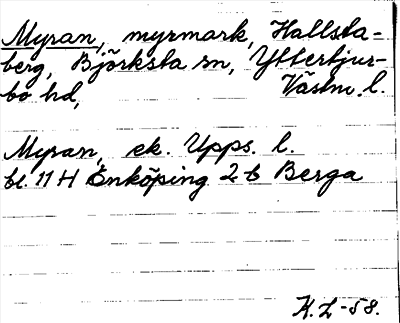 Myran, myrmark, Hallsta-
berg, Björksta sn, Yttertjur-
bo hd, Västm. l.
Myran, ek. Upps. l.
bl. 11 H Enköping 2 b Berga
K. L -58.